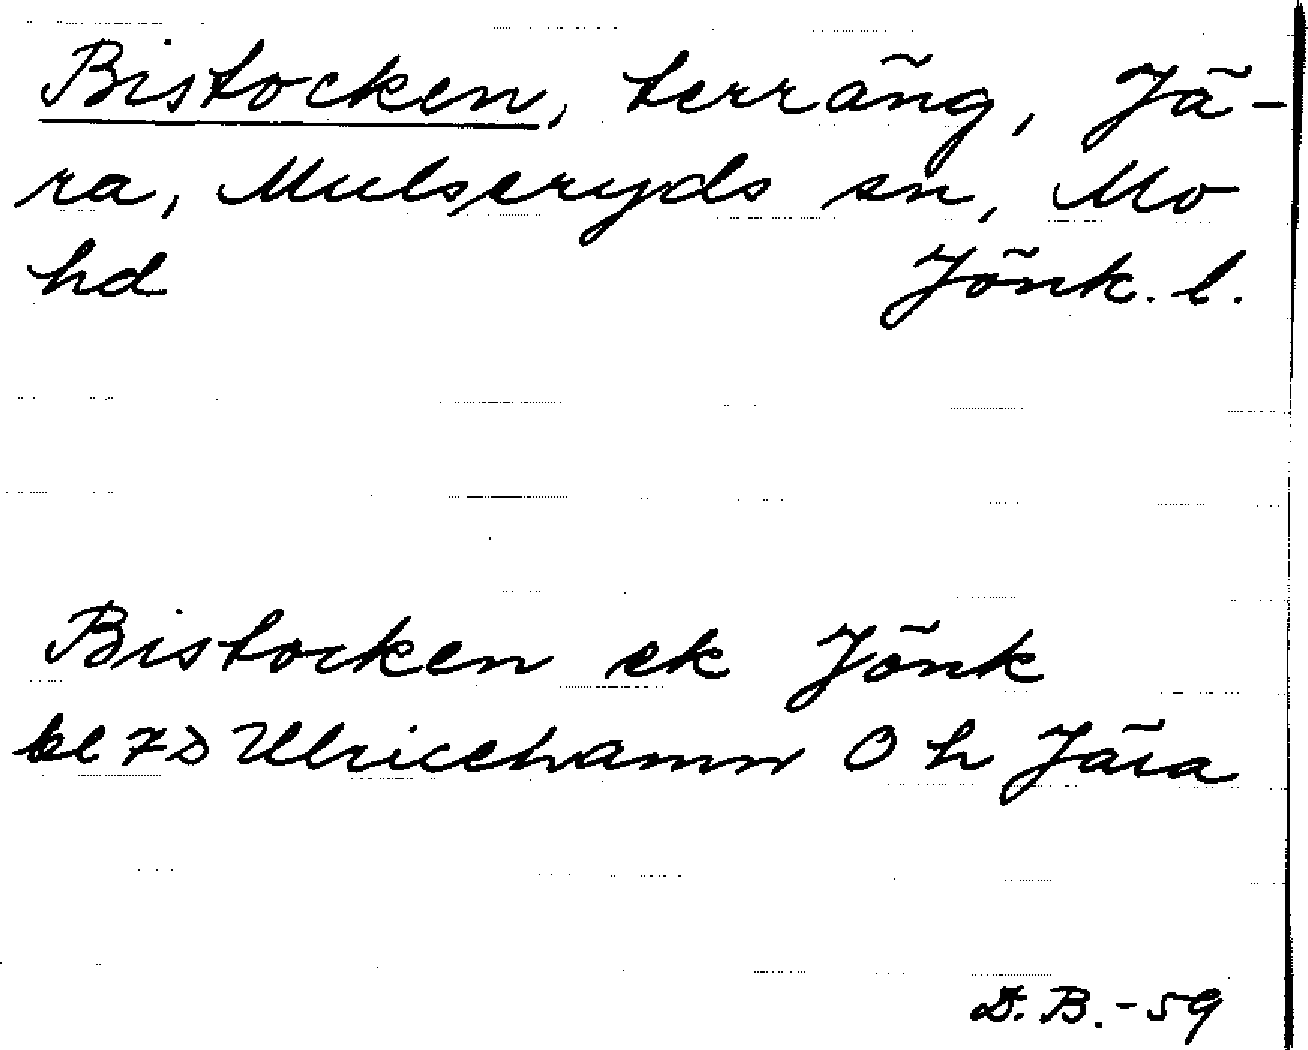 Bistocken, terräng, Jä-
ra, Mulseryds sn, Mo
hd Jönk. l.
Bistocken ek Jönk
bl 7D Ulricehamn O h Jära
D. B. -59